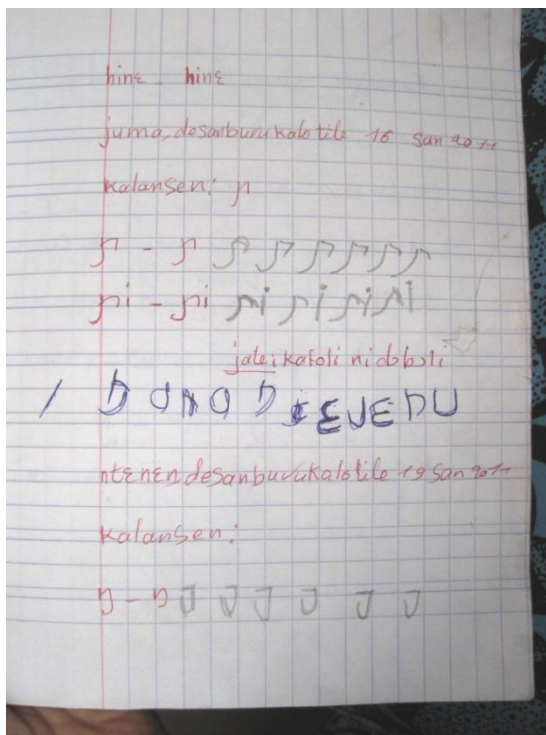 hinɛ hinɛ
juma, desanburu kalo tile 16 san 2011
kalansen: ɲ
ɲ - ɲ ɲ ɲ ɲ ɲ ɲ ɲ
ɲi - ɲi ɲi ɲi ɲi ɲi
jate: kafoli ni dɔbɔli
ntɛnɛn desanburukalo tile 19 san 2011
kalansen:
ŋ - ŋ